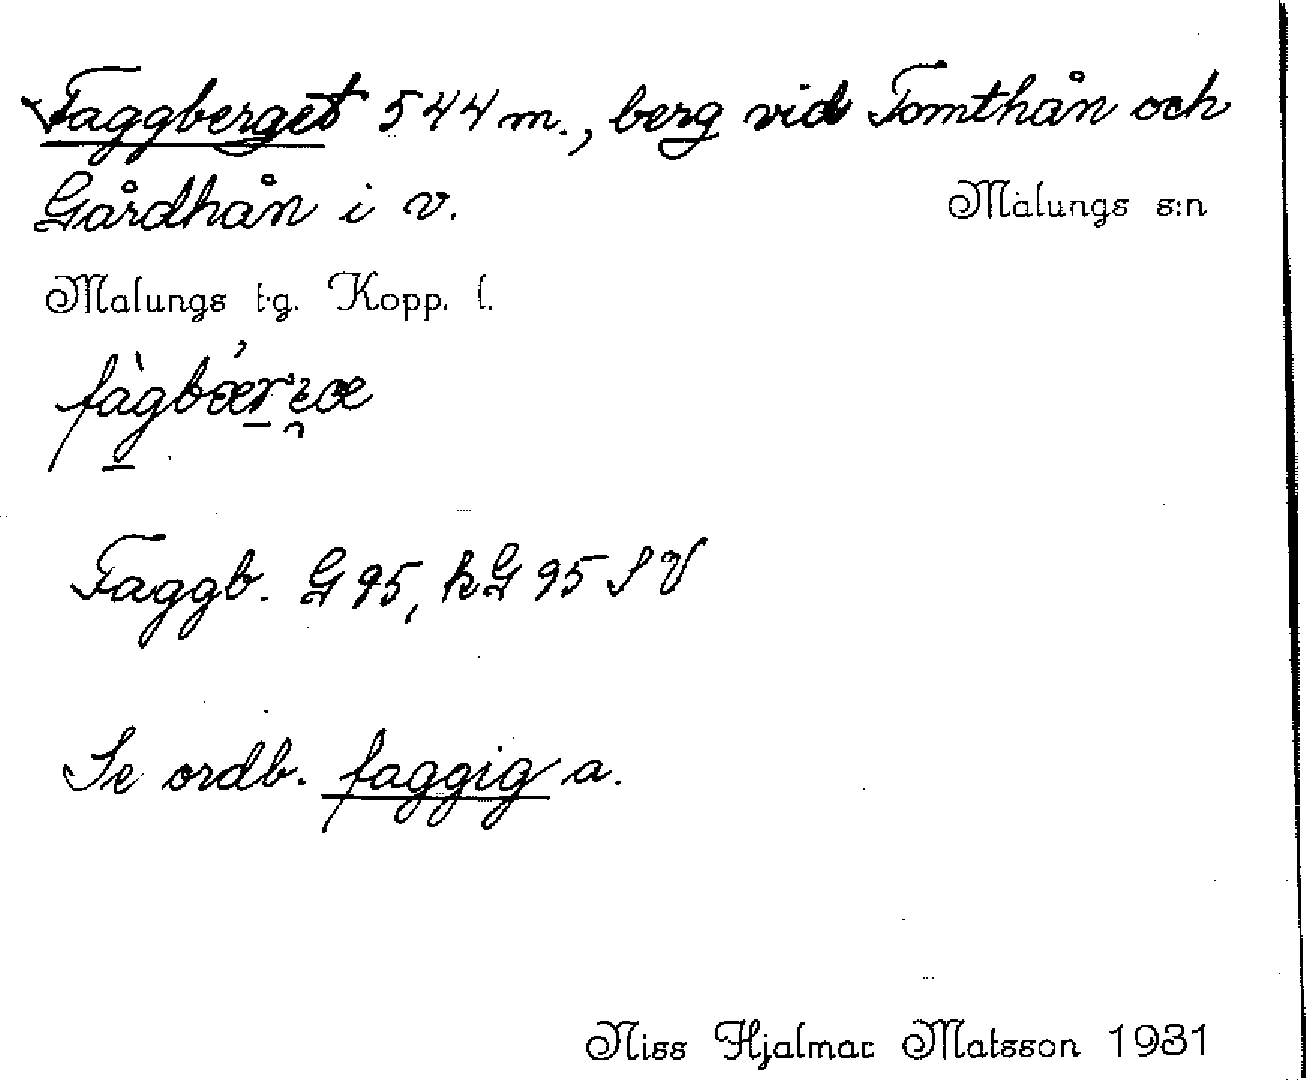 Faggberget 544 m., berg vid Tomthån och
Gårdhån i v. Malungs s:n
Malungs tg. Kopp. l.
Faggb. G 95, kG 95 SV
Se ordb. faggig a.
Niss Hjalmar Matsson 1931